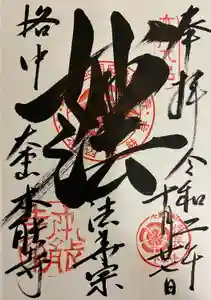 奉拝
令和二年
十月廿七日
妙法
法華宗
洛中
大本山
本能寺